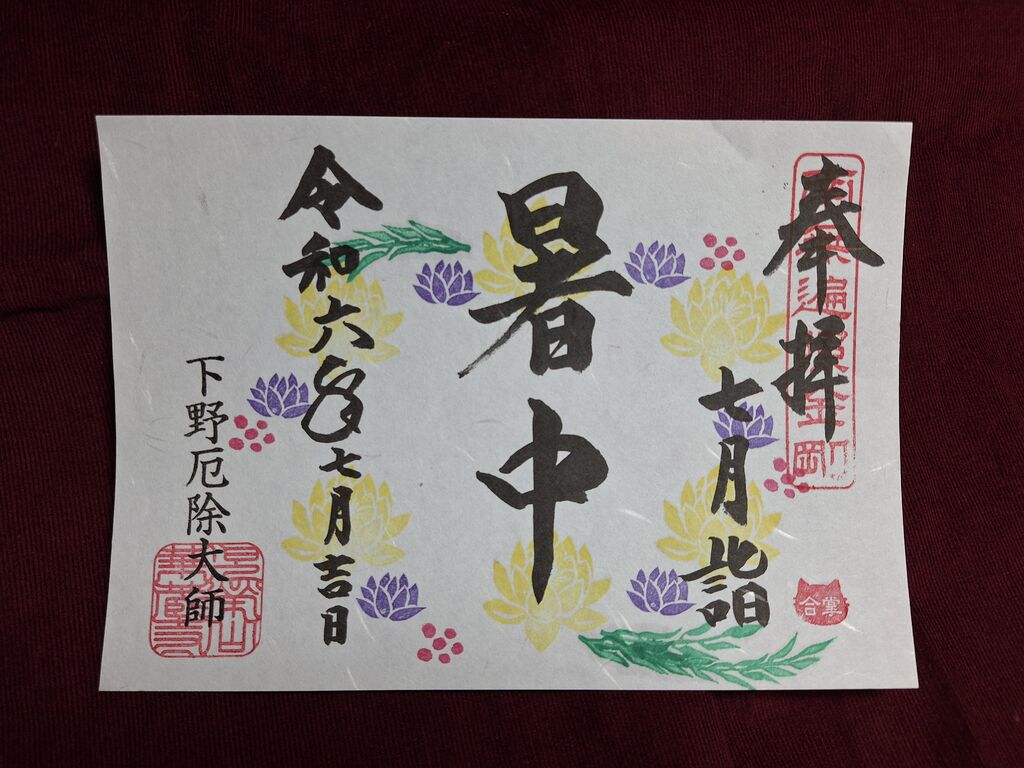 奉拝
南無遍照金剛
七月詣
合掌
暑中
令和六年七月吉日
下野厄除大師